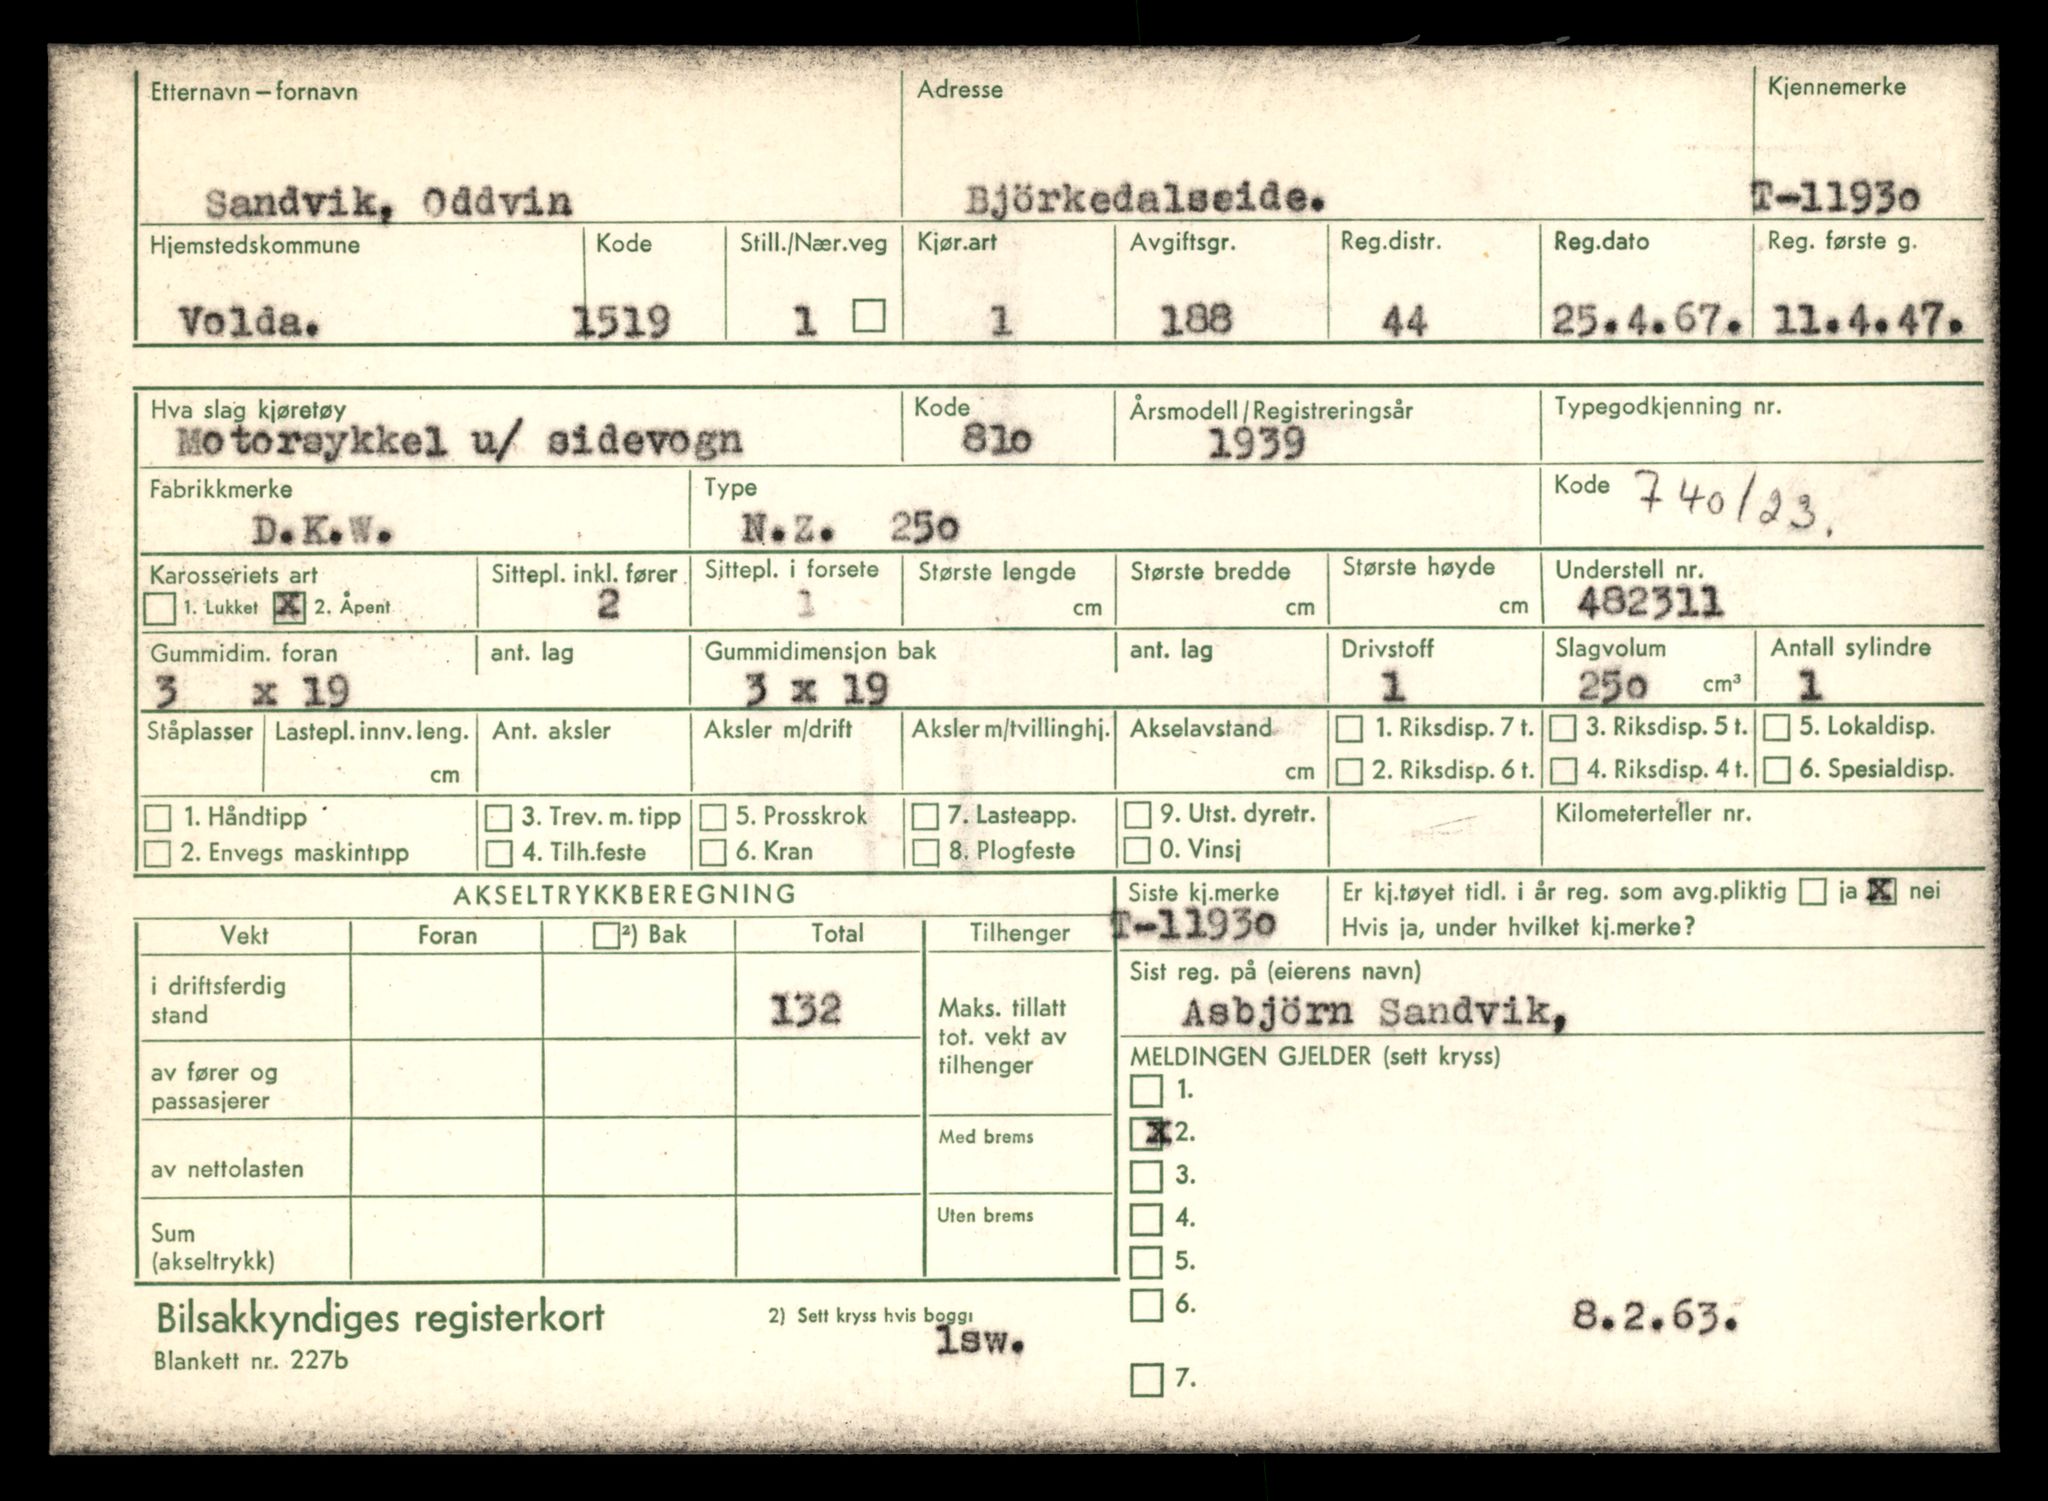 Etternavn – fornavn Adresse Kjennemerke
Sandvik, Oddvin Björkedalseide. T-1193o
Hjemstedskommune Kode Still./Nær.veg Kjør.art Avgiftsgr. Reg.distr. Reg.dato Reg. første g.
Volda. 1519 1 1 188 44 25.4.67. 11.4.47.
Hva slag kjøretøy Kode Årsmodell/Registreringsår Typegodkjenning nr.
Motorsykkel u/ sidevogn 81o 1939
Fabrikkmerke Type Kode 740/23.
D.K.W. N.Z. 25o
Karosseriets art Sittepl. inkl. fører Sittepl. i forsete Største lengde Største bredde Største høyde Understell nr.
1. Lukket X 2. Åpent 2 1 cm cm cm 482311
Gummidim. foran ant. lag Gummidimensjon bak ant. lag Drivstoff Slagvolum Antall sylindre
3 x 19 3 x 19 1 25o cm³ 1
Ståplasser Lastepl. innv. leng. Ant. aksler Aksler m/drift Aksler m/tvillinghj. Akselavstand 1. Riksdisp. 7 t. 3. Riksdisp. 5 t. 5. Lokaldisp.
cm cm 2. Riksdisp. 6 t. 4. Riksdisp. 4 t. 6. Spesialdisp.
1. Håndtipp 3. Trev. m. tipp 5. Prosskrok 7. Lasteapp. 9. Utst. dyretr. Kilometerteller nr.
2. Envegs maskintipp 4. Tilh.feste 6. Kran 8. Plogfeste 0. Vinsj
AKSELTRYKKBEREGNING Siste kj.merke Er kj.tøyet tidl. i år reg. som avg.pliktig ja X nei
T-1193o Hvis ja, under hvilket kj.merke?
Vekt Foran ²) Bak Total Tilhenger
Sist reg. på (eierens navn)
i driftsferdig stand 132 Maks. tillatt tot. vekt av tilhenger
Asbjörn Sandvik,
MELDINGEN GJELDER (sett kryss)
av fører og passasjerer
1.
X 2.
Med brems
av nettolasten
3.
4.
Uten brems
Sum
(akseltrykk)
5.
6.
8.2.63.
Bilsakkyndiges registerkort 2) Sett kryss hvis boggi
lsw.
Blankett nr. 227b
7.